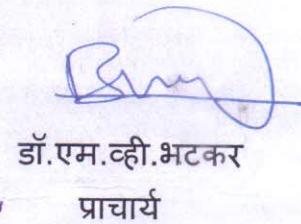 डॉ.एम.व्ही.भटकर
प्राचार्य